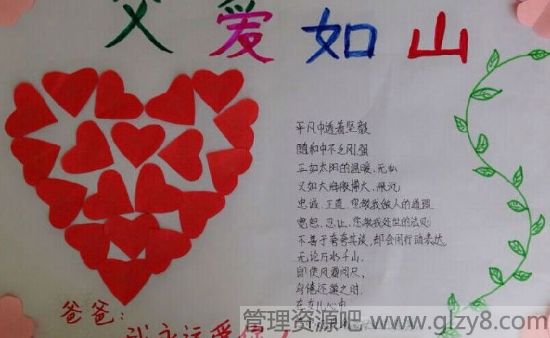 父爱如山
平凡中透着坚毅
随和中不乏刚强
正如太阳的温暖,无私
又如大海般博大,
忠诚、正直,您教我做人的道理
宽恕、忍让,您教我处世的法则
不善于夸夸其谈,却会用行动表达
无论万水千山,
即使风霜
在女儿心中
爸爸:
我永远爱
管理资源吧 www.glzy8.com